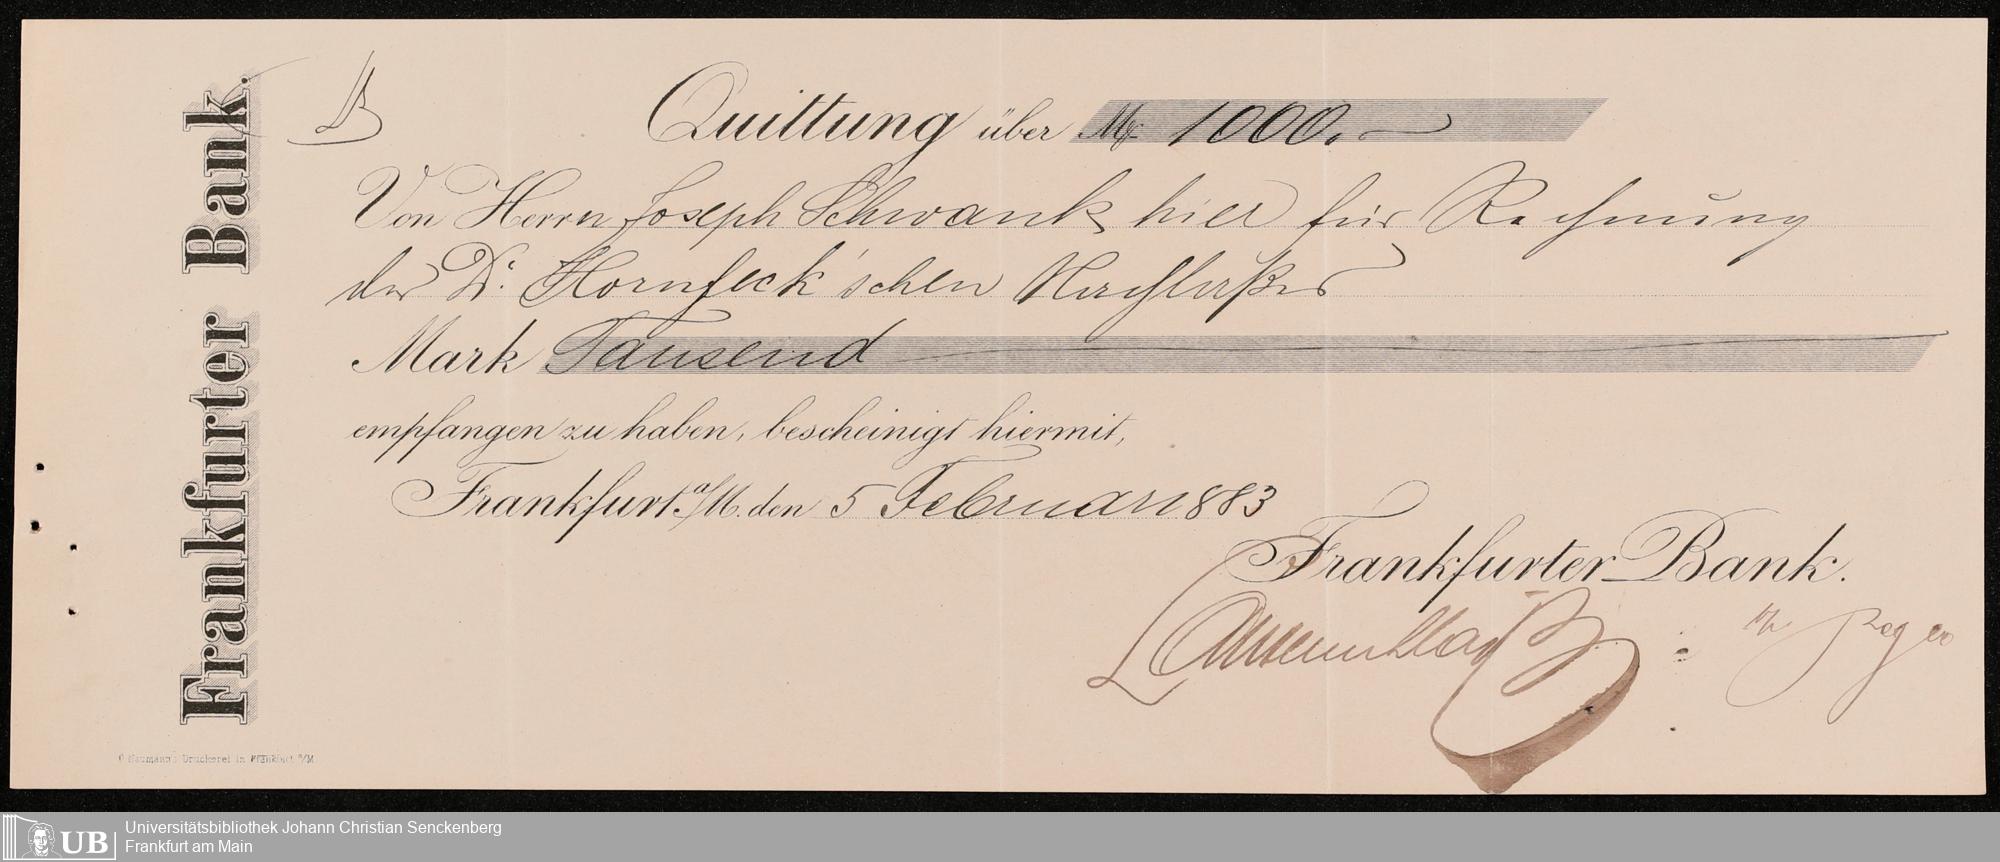 Frankfurter Bank.
B
Quittung über M 1000.—
Von Herrn Joseph Schwank hier für Rechnung
des Dr. Hornfeck'schen Nachlaßes
Mark Tausend
empfangen zu haben, bescheinigt hiermit,
Frankfurt a/M. den 5 Februar 1883
Frankfurter Bank.
C Naumann's Druckerei in Frankfurt a/M
UB
Universitätsbibliothek Johann Christian Senckenberg
Frankfurt am Main